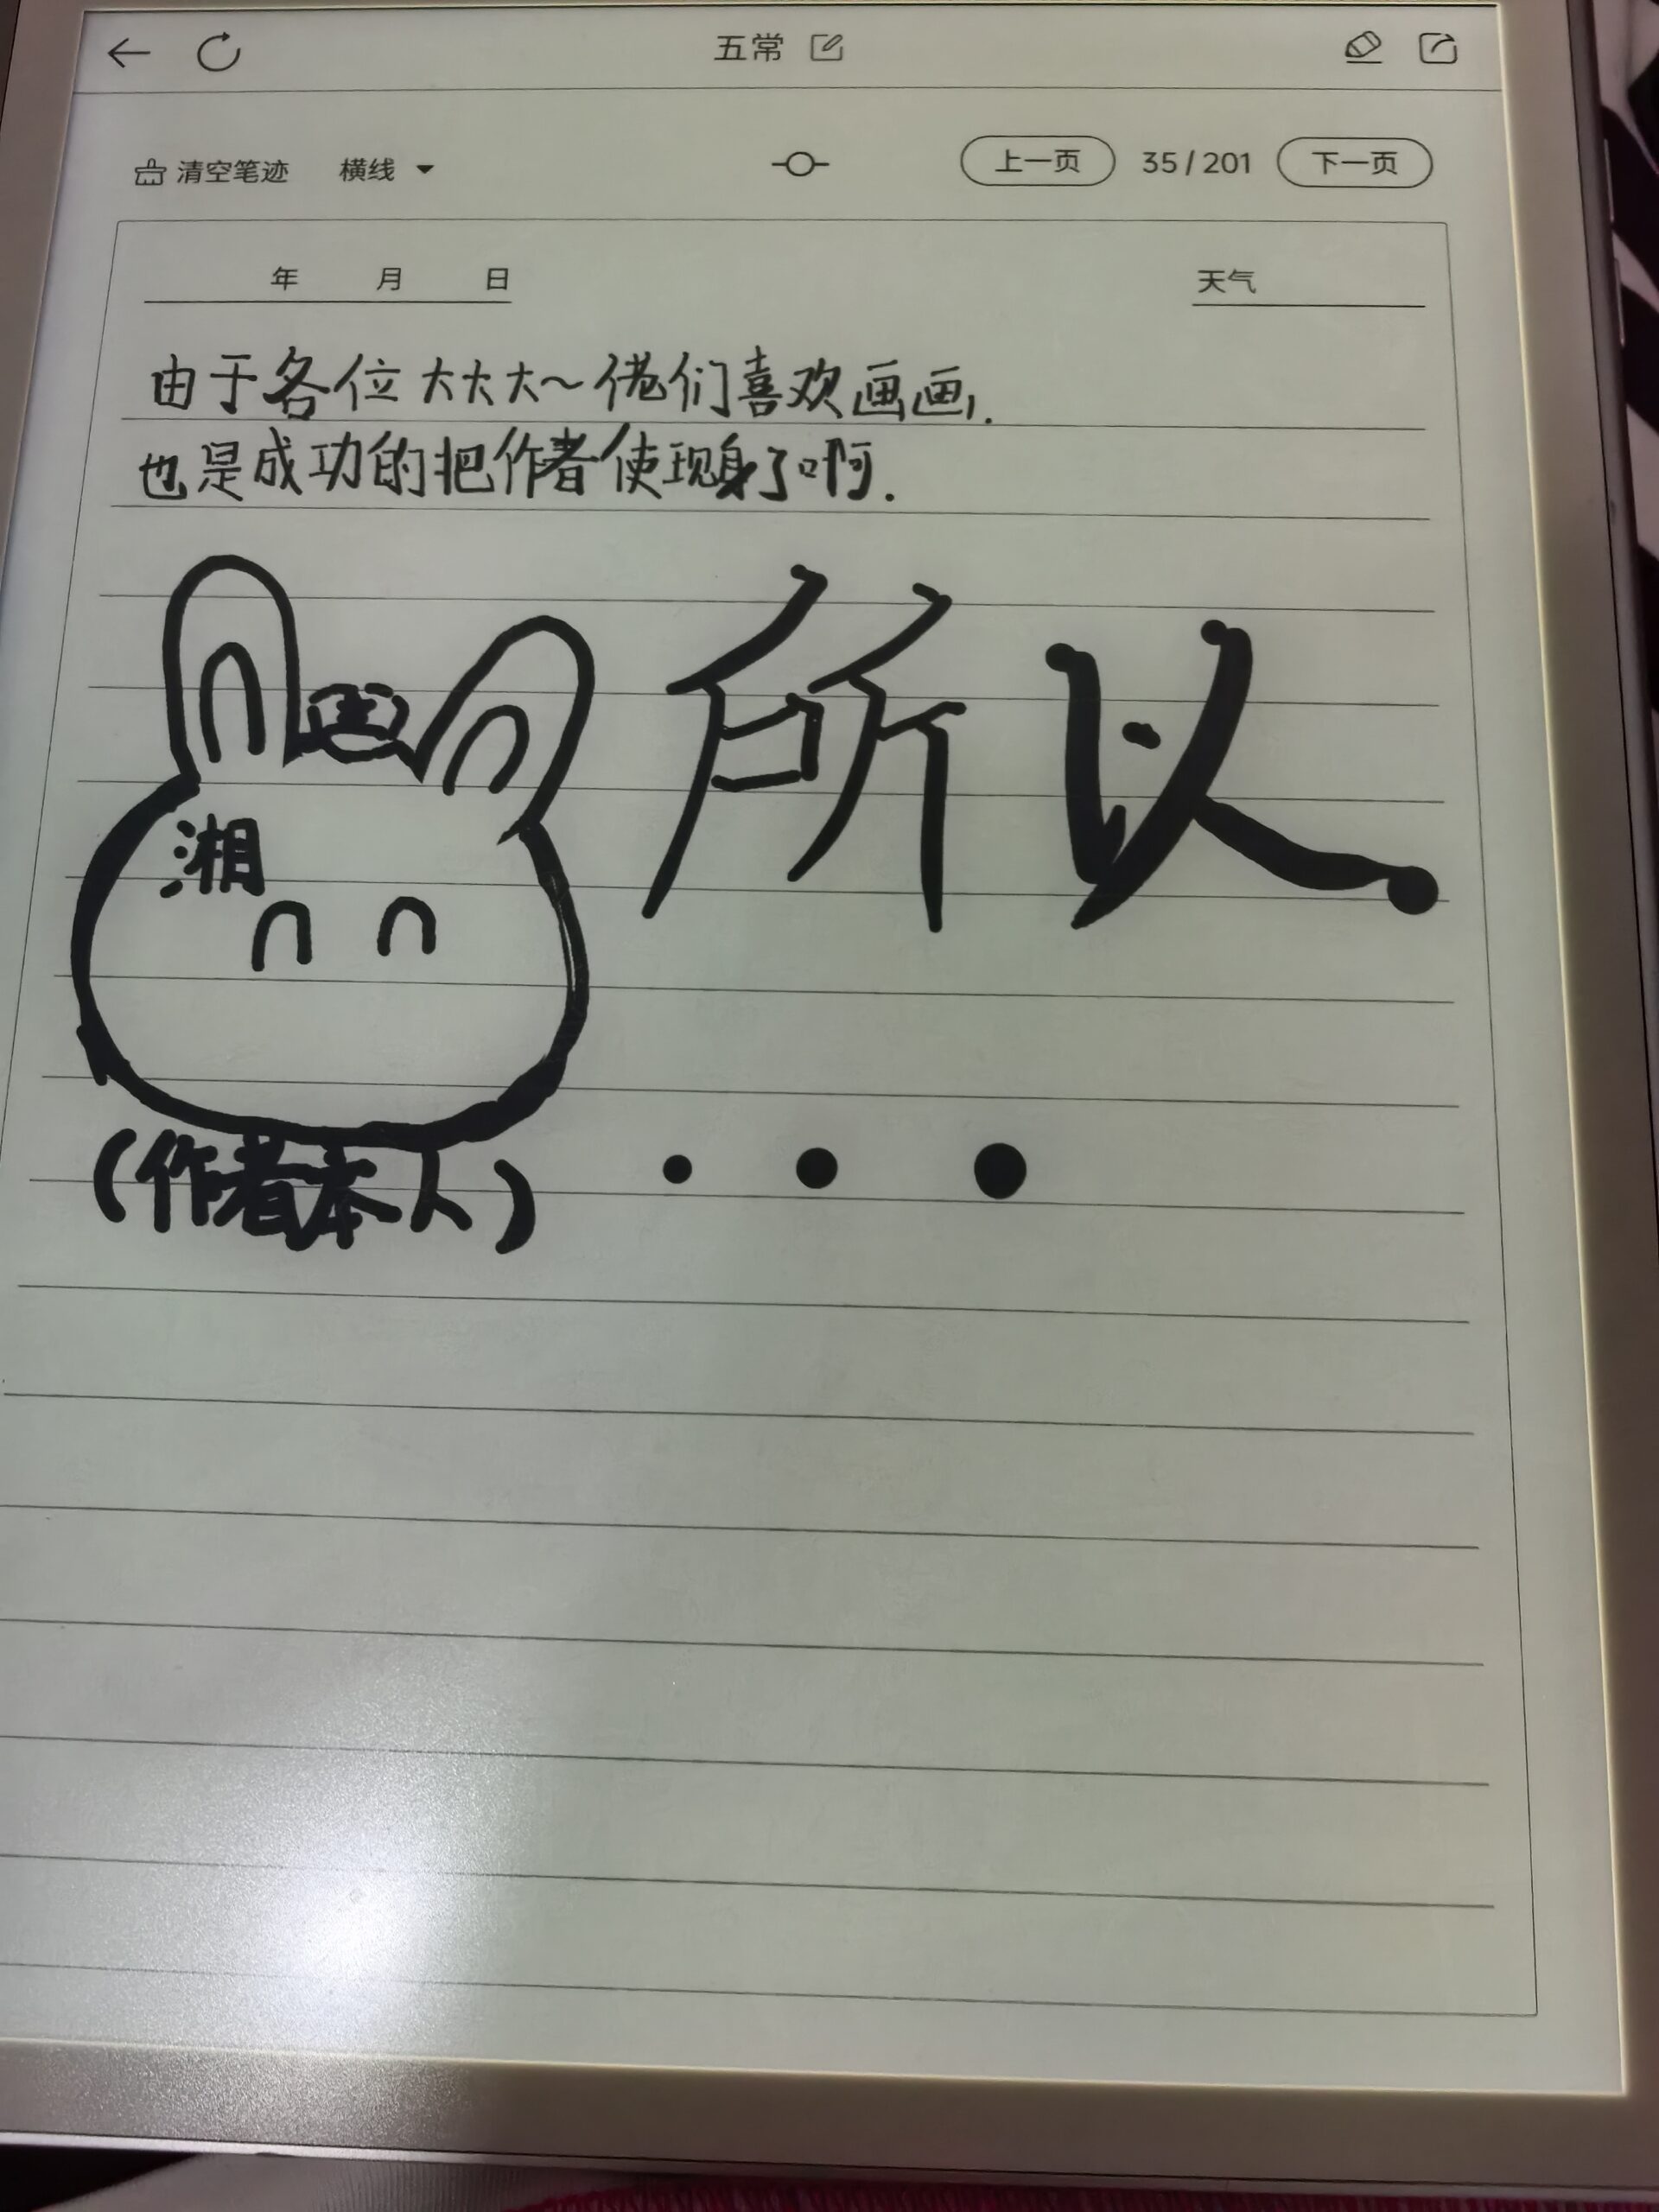 五常
清空笔迹 横线 上一页 35/201 下一页
年 月 日 天气
由于各位大大大~佬们喜欢画画,.
也是成功的把作者使现身了啊.
所以
湘
(作者本人) ...